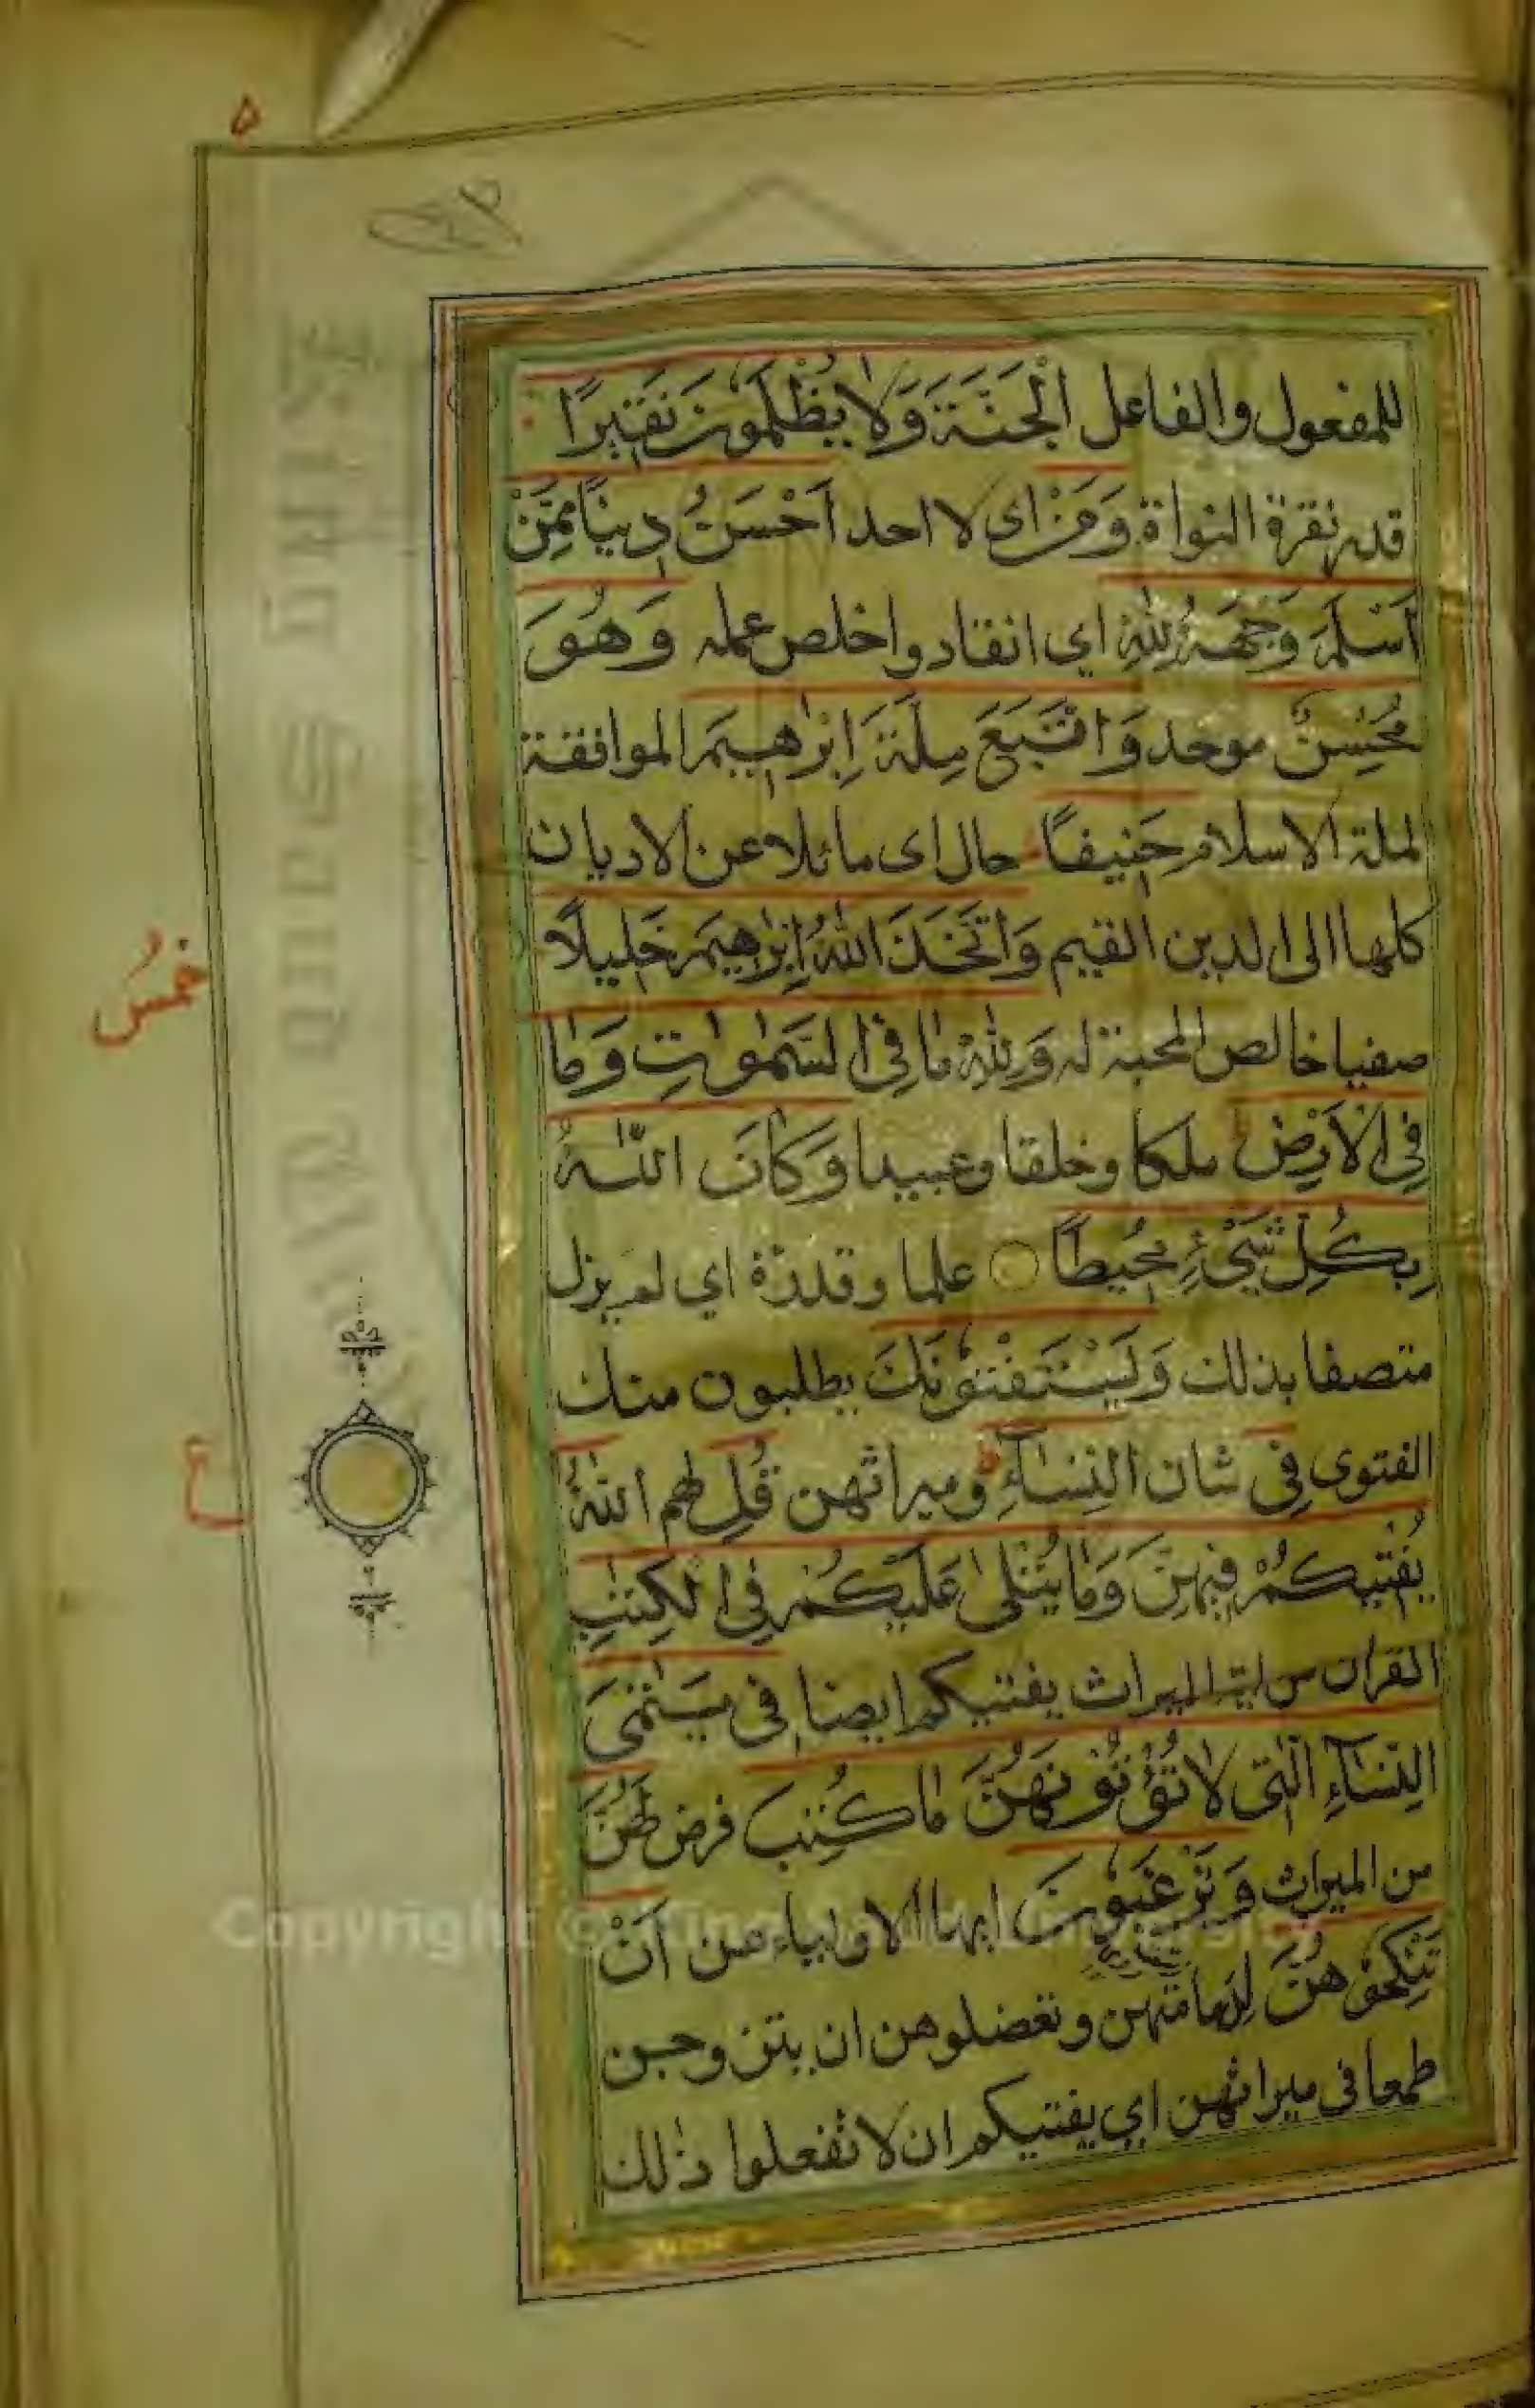 ٥
للمفعول والفاعل الْجَنَّةَ وَلَا يُظْلَمُونَ نَقِيرًا
قدر نقرة النواة وَمَنْ اى لا احد اَحْسَنُ دِينًا مِمَّنْ
اَسْلَمَ وَجْهَهُ لِلّٰهِ اي انقاد واخلص عمله وَهُوَ
مُحْسِنٌ موحد وَاتَّبَعَ مِلَّةَ اِبْرٰهِيمَ الموافقة
لملة الاسلام حَنِيفًا حال اى مائلا عن الاديان
كلها الى الدين القيم وَاتَّخَذَ اللّٰهُ اِبْرٰهِيمَ خَلِيلًا
صفيا خالص المحبة له وَلِلّٰهِ مَا فِي السَّمٰوَاتِ وَمَا
فِي الْاَرْضِ ملكا وخلقا وعبيدا وَكَانَ اللّٰهُ
بِكُلِّ شَيْءٍ مُحِيطًا علما وقدرة اي لم يزل
متصفا بذلك وَيَسْتَفْتُونَكَ يطلبون منك
الفتوى فِي شان النِّسَآءِ وميراثهن قُلِ لهم اللّٰهُ
يُفْتِيكُمْ فِيهِنَّ وَمَا يُتْلٰى عَلَيْكُمْ فِي الْكِتٰبِ
القران من اية الميراث يفتيكم ايضا فِى يَتٰمَى
النِّسَآءِ الّٰتِى لَا تُؤْتُونَهُنَّ مَا كُتِبَ فرض لَهُنَّ
من الميراث وَتَرْغَبُونَ ايها الاولياء عن اَنْ
تَنْكِحُوهُنَّ لدمامتهن وتعضلوهن ان يتزوجن
طمعا فى ميراثهن اي يفتيكم ان لا تفعلوا ذلك
خمس
ع
Copyright © King Saud University